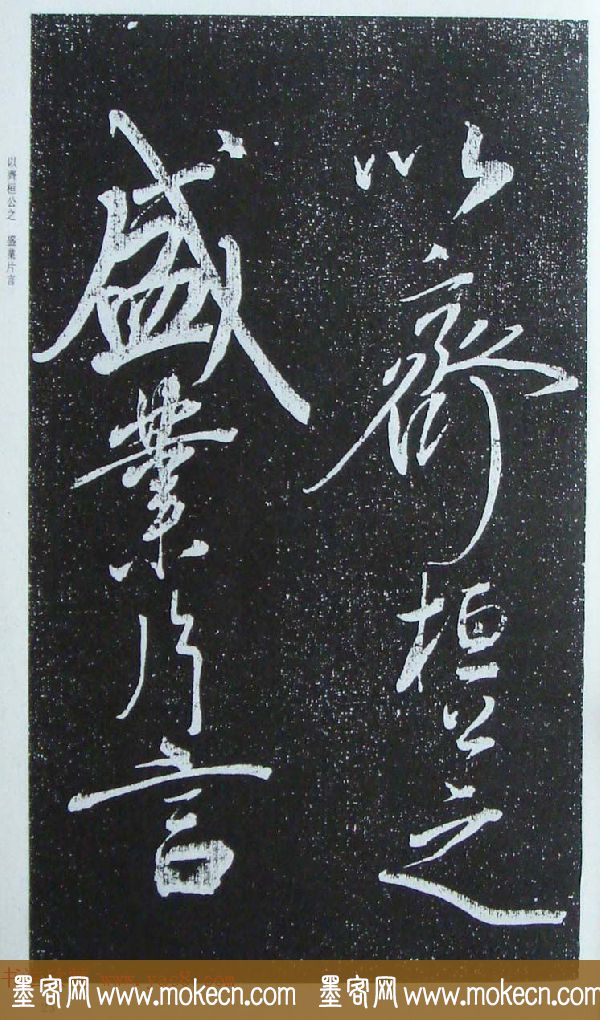 以齊桓公之
盛業片言
以齊桓公之 盛業片言
墨客网 www.mokecn.com 墨客网 www.mokecn.com